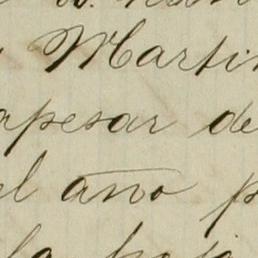 Martin
apesar de
el año p
la